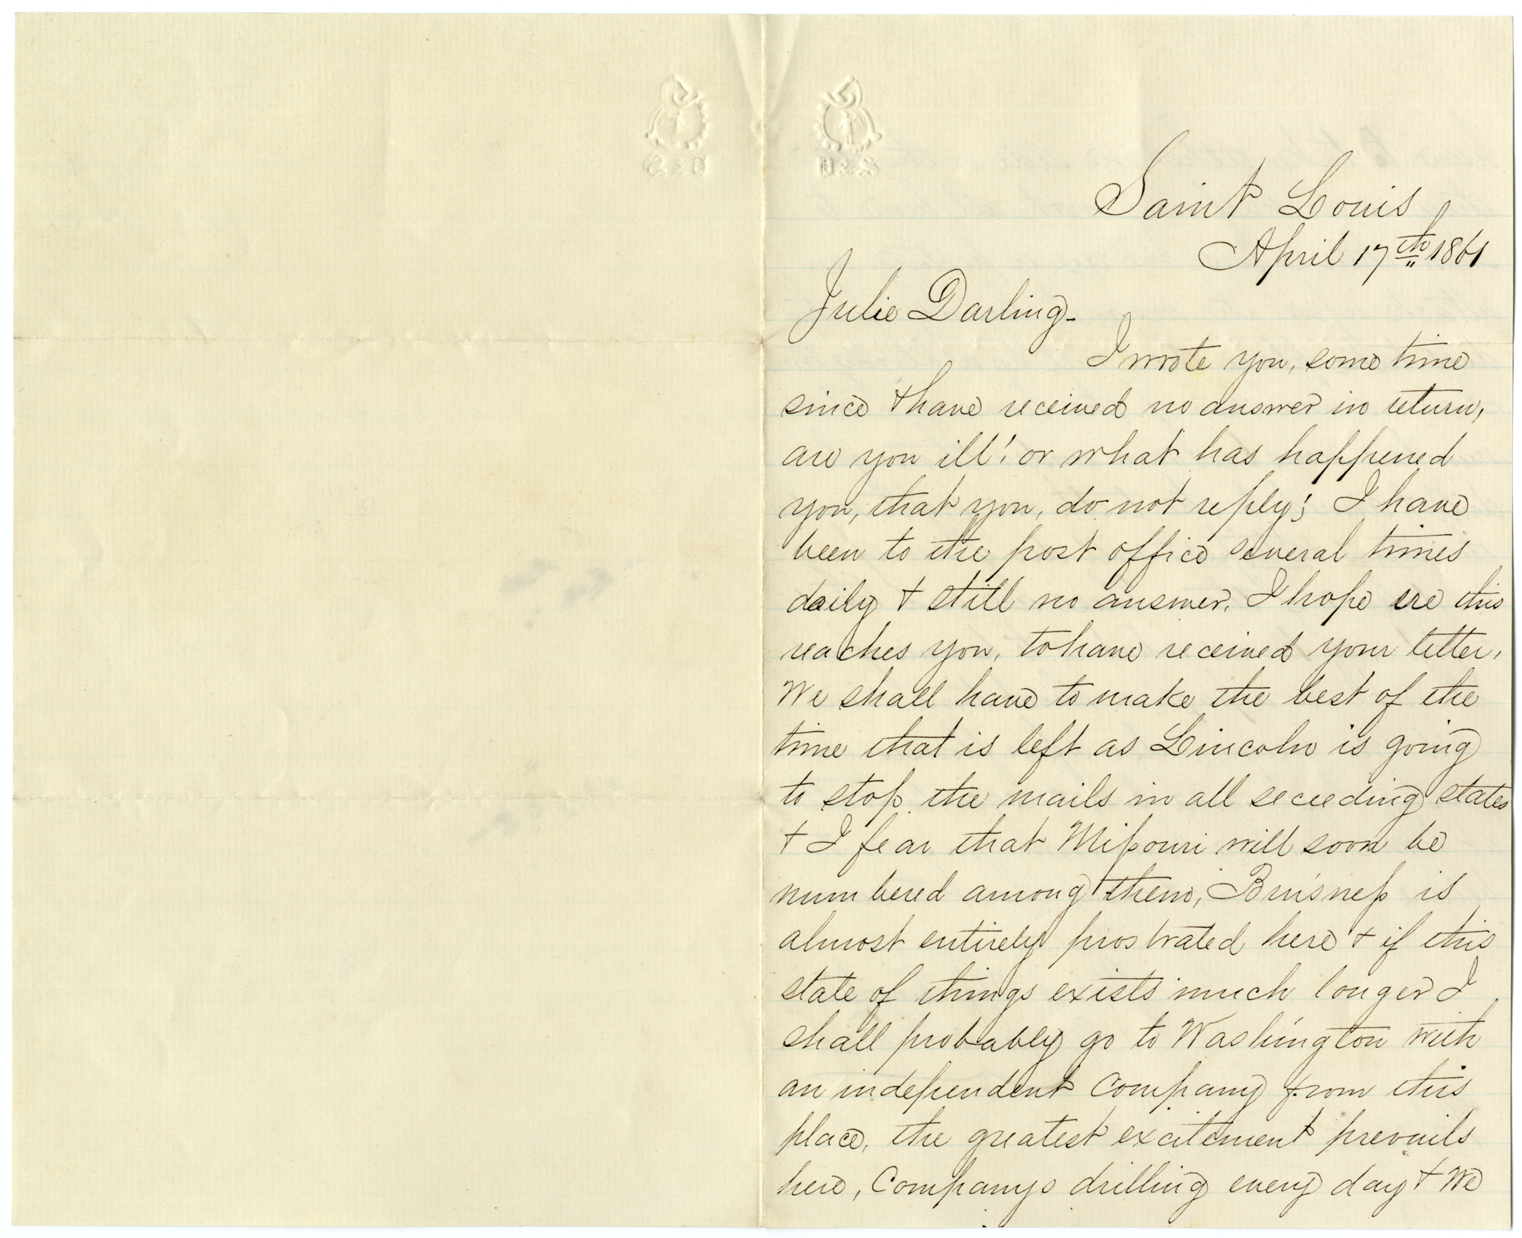 Saint Louis
April 17th 1861
Julie Darling-
I wrote you, some time
since & have received no answer in return,
are you ill! or what has happened
you, that you, do not reply; I have
been to the post office several times
daily & still no answer. I hope ere this
reaches you, to have received your letter.
We shall have to make the best of the
time that is left as Lincoln is going
to stop the mails in all seceeding states
& I fear that Missouri will soon be
numbered among them, Buisness is
almost entirely prostrated here & if this
state of things exists much longer I
shall probably go to Washington with
an independent Company from this
place, the greatest excitement prevails
here, Companys drilling every day & We